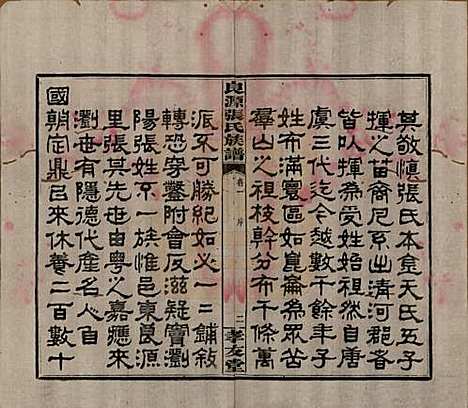 其敬慎張氏本金天氏五子
揮之苗裔凡系出清河郡者
皆以揮為受姓始祖然自唐
虞三代迄今越數千餘年子
姓布滿寰區如崑崙為眾
羣山之祖枝幹分布千條萬
良源張氏族譜
卷一
序
二
孝友堂
派不可勝紀如必一二鋪敍
轉恐穿鑿附會反滋疑竇瀏
陽張姓不一族惟邑東良源
里張其先世由粵之嘉應來
瀏世有隱德代產名人自
國朝定鼎已來休養二百數十